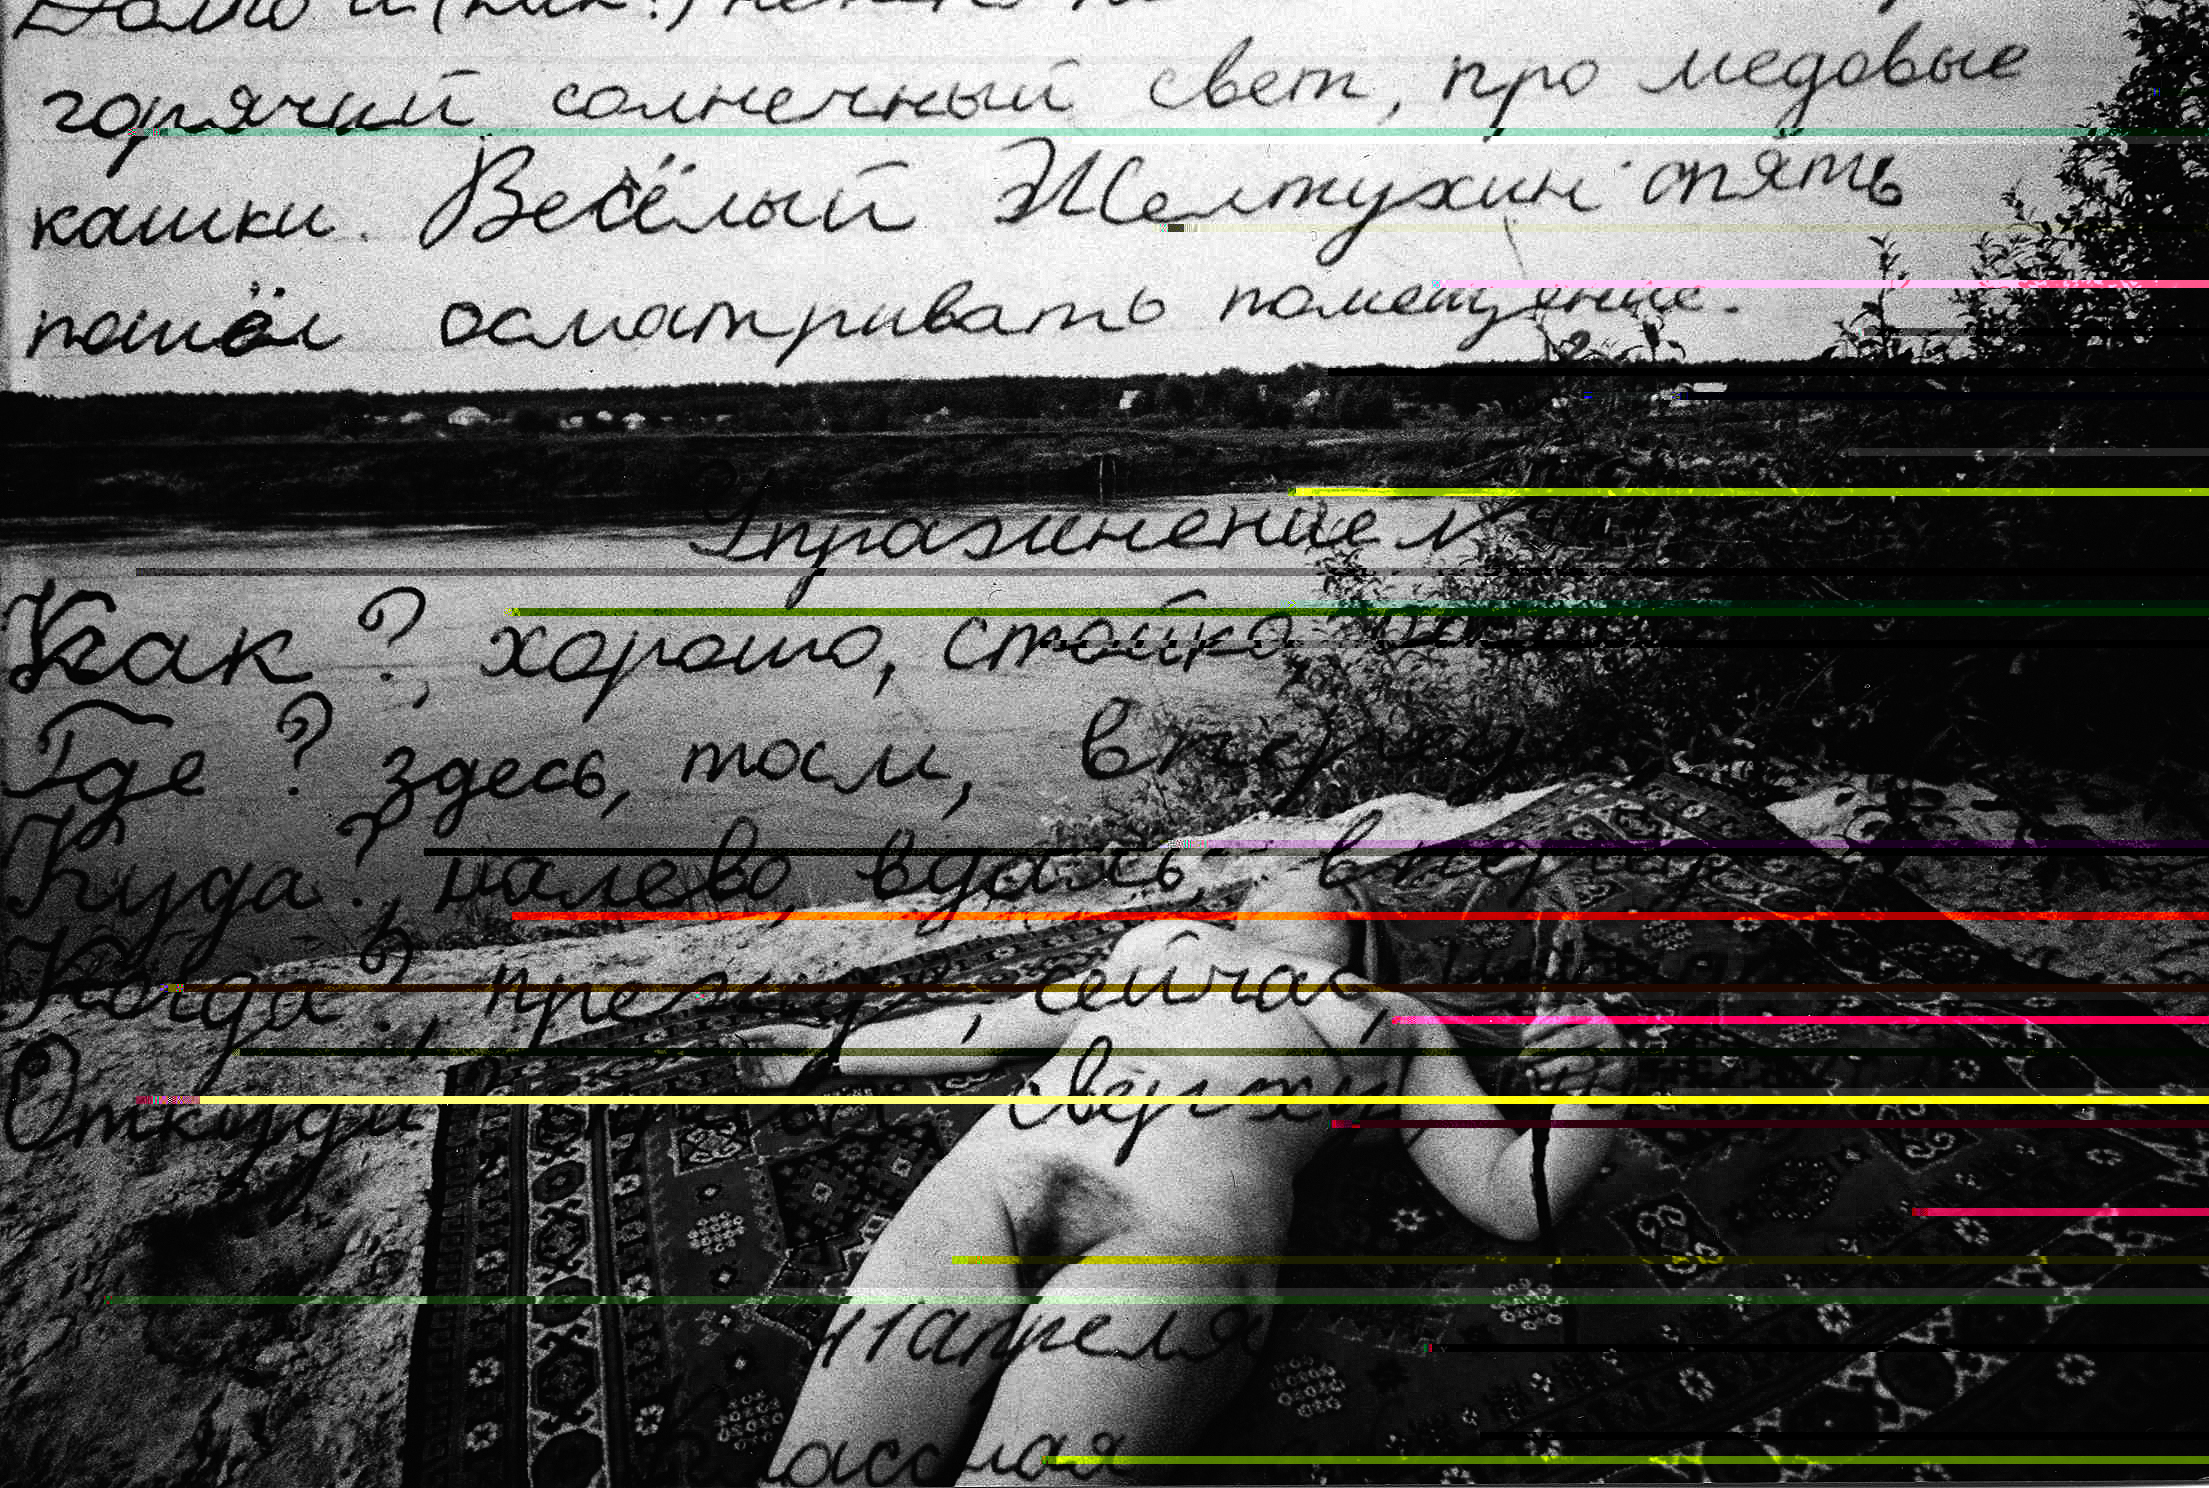 горячий солнечный свет, про медовые
кашки. Весёлый Желтухин опять
пошёл осматривать помещение.
Упражнение
Как?, хорошо, стойко
Где? здесь, там,
Куда?, налево, вдаль,
Когда?, прежде, сейчас,
Откуда сверху
11 апреля
Классная